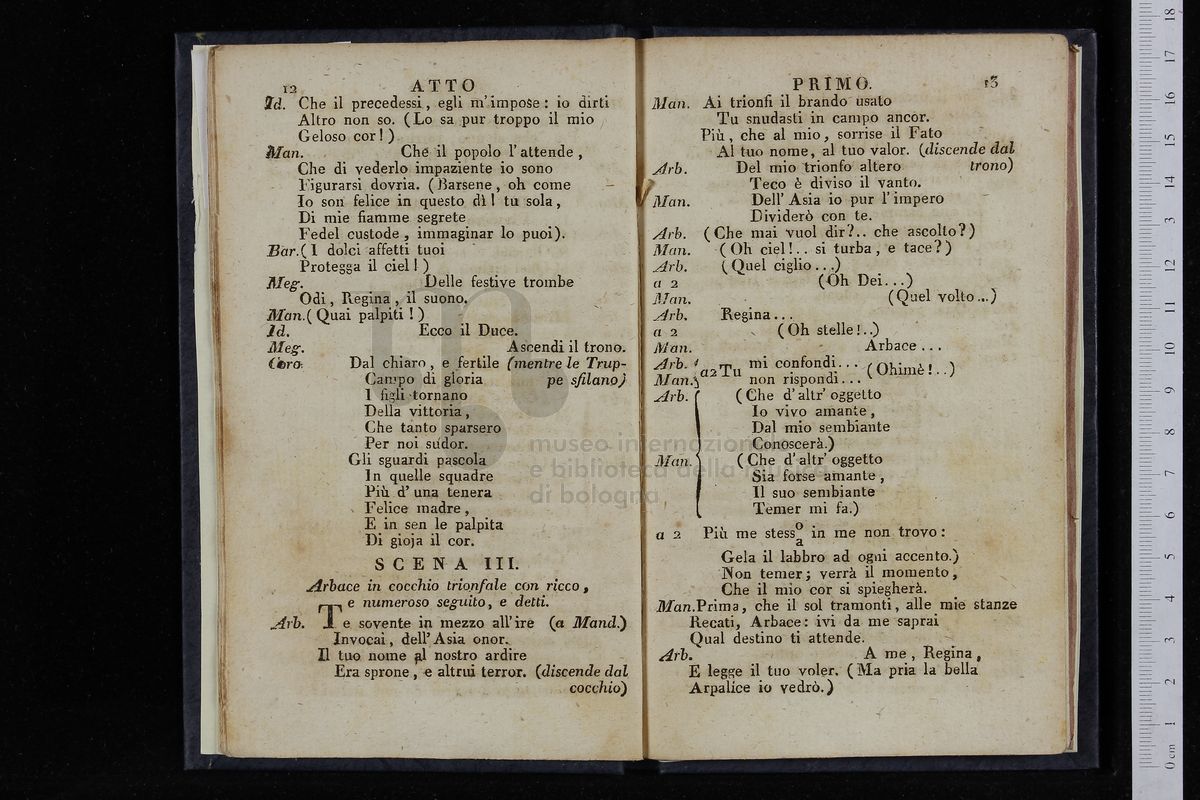 12 ATTO
Id. Che il precedessi, egli m'impose: io dirti
Altro non so. (Lo sa pur troppo il mio
Geloso cor!)
Man. Che il popolo l'attende,
Che di vederlo impaziente io sono
Figurarsi dovria. (Barsene, oh come
Io son felice in questo dì! tu sola,
Di mie fiamme segrete
Fedel custode, immaginar lo puoi).
Bar. (I dolci affetti tuoi
Protegga il ciel!)
Meg. Delle festive trombe
Odi, Regina, il suono.
Man. (Quai palpiti!)
Id. Ecco il Duce.
Meg. Ascendi il trono.
Coro. Dal chiaro, e fertile (mentre le Trup-
Campo di gloria pe sfilano)
I figli tornano
Della vittoria,
Che tanto sparsero
Per noi sudor.
Gli sguardi pascola
In quelle squadre
Più d'una tenera
Felice madre,
E in sen le palpita
Di gioja il cor.
SCENA III.
Arbace in cocchio trionfale con ricco,
e numeroso seguito, e detti.
Arb. Te sovente in mezzo all'ire (a Mand.)
Invocai, dell'Asia onor.
Il tuo nome al nostro ardire
Era sprone, e altrui terror. (discende dal
cocchio)
PRIMO. 13
Man. Ai trionfi il brando usato
Tu snudasti in campo ancor.
Più, che al mio, sorrise il Fato
Al tuo nome, al tuo valor. (discende dal
Arb. Del mio trionfo altero trono)
Teco è diviso il vanto.
Man. Dell'Asia io pur l'impero
Dividerò con te.
Arb. (Che mai vuol dir?.. che ascolto?)
Man. (Oh ciel!.. si turba, e tace?)
Arb. (Quel ciglio...)
a 2 (Oh Dei...)
Man. (Quel volto...)
Arb. Regina...
a 2 (Oh stelle!..)
Man. Arbace...
Arb. a2 Tu mi confondi... (Ohimè!..)
Man. non rispondi...
Arb. (Che d'altr'oggetto
Io vivo amante,
Dal mio sembiante
Conoscerà.)
Man. (Che d'altr'oggetto
Sia forse amante,
Il suo sembiante
Temer mi fa.)
a 2 Più me stesso/a in me non trovo:
Gela il labbro ad ogni accento.)
Non temer; verrà il momento,
Che il mio cor si spiegherà.
Man. Prima, che il sol tramonti, alle mie stanze
Recati, Arbace: ivi da me saprai
Qual destino ti attende.
Arb. A me, Regina,
E legge il tuo voler. (Ma pria la bella
Arpalice io vedrò.)
museo internazionale
e biblioteca della musica
di bologna
0 cm 1 2 3 4 5 6 7 8 9 10 11 12 13 14 15 16 17 18